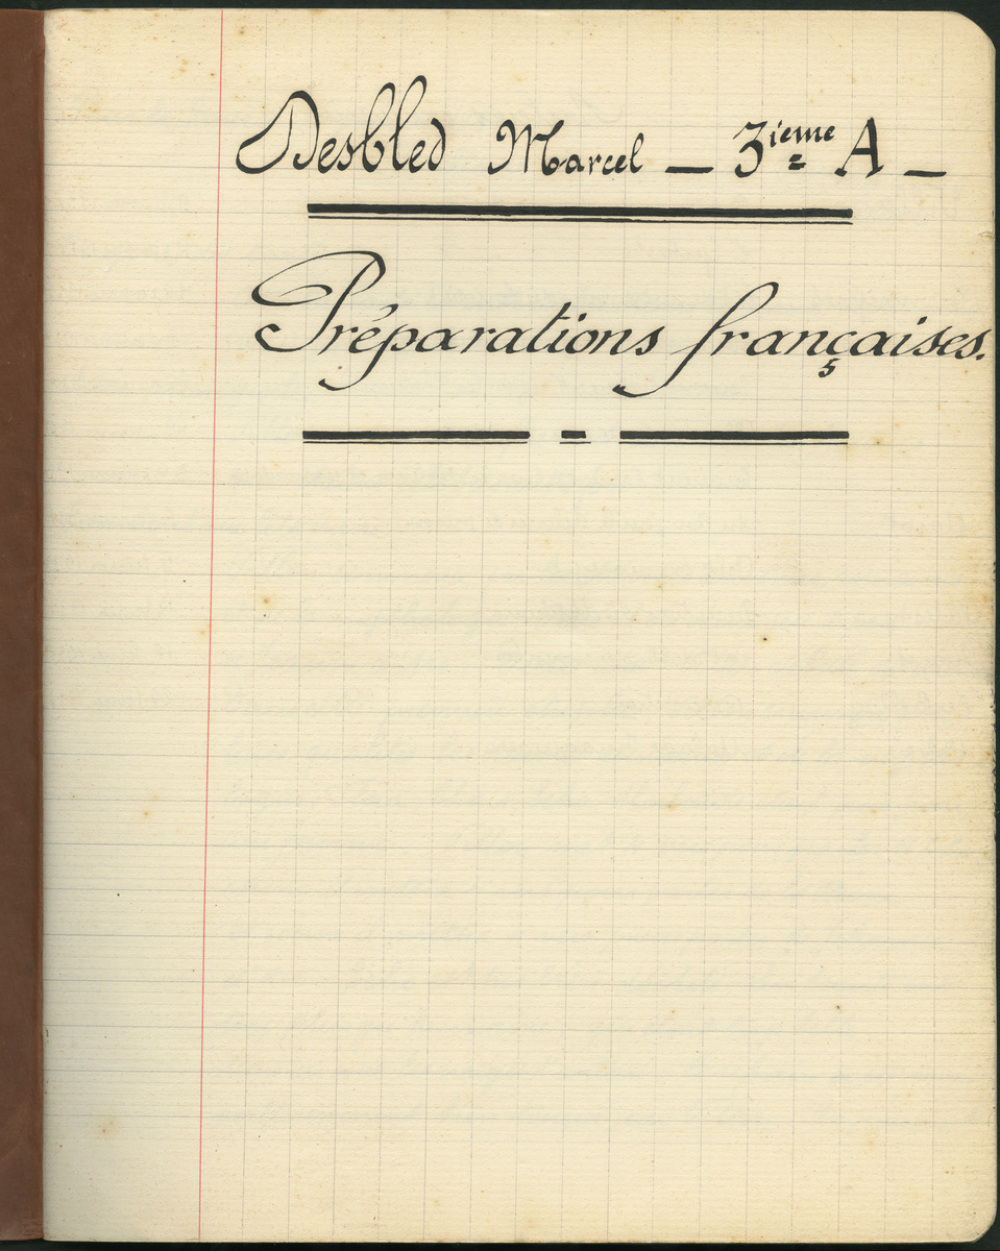 Desbled Marcel — 3ieme A —
Préparations françaises.